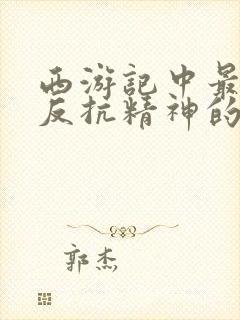 西游记中最
反抗精神的
郭杰